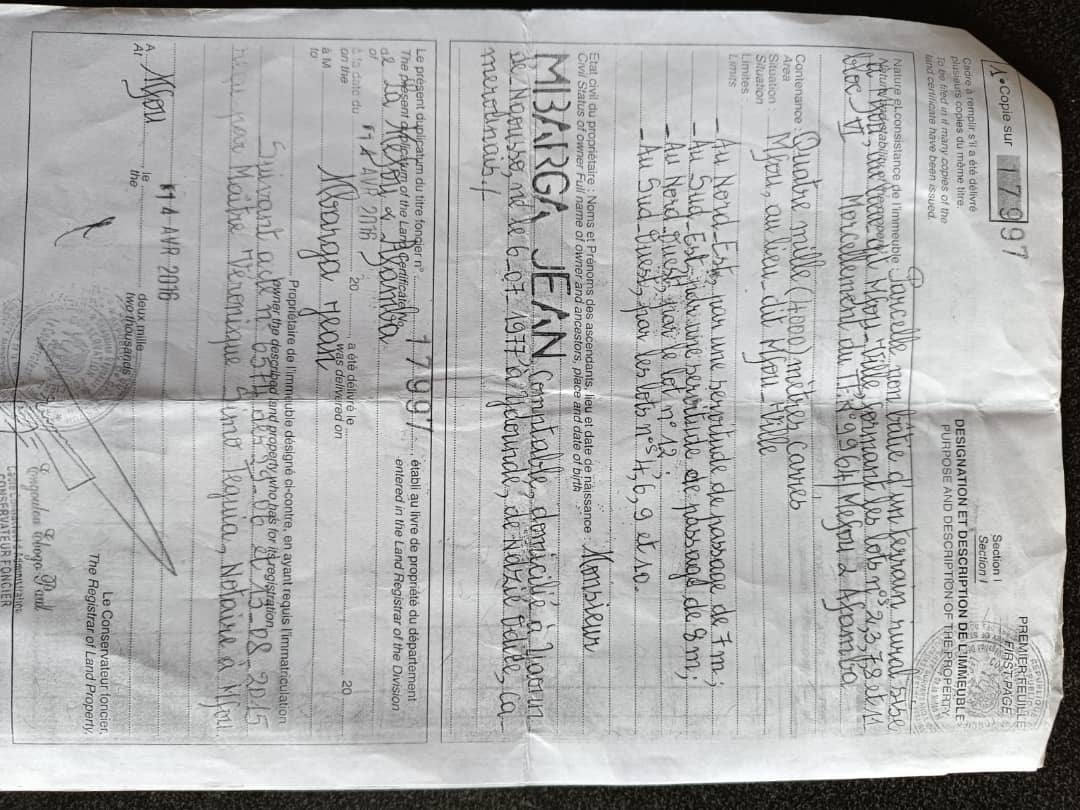 PREMIER FEUILLE
FIRST PAGE
Section I
Section I
DESIGNATION ET DESCRIPTION DE L'IMMEUBLE
PURPOSE AND DESCRIPTION OF THE PROPERTY
1ère Copie sur 17997
Cadre à remplir s'il a été délivré
plusieurs copies du même titre.
To be filed in if many copies of the
land certificate have been issued.
Nature et consistance de l'immeuble Parcelle non bâtie d'un terrain rural sise
Mfou-Ville, formant les lots n°s 2,3,7,8 et 11
bloc VI, Morcellement du T.F. n° 9961/Mefou & Afamba
Contenance : Quatre mille (4000) mètres carrés
Area
Situation : Mfou, au lieu-dit Mfou-Ville
Situation
Limites :
Limits
- Au Nord-Est, par une servitude de passage de 7m ;
- Au Sud-Est, par une servitude de passage de 8m ;
- Au Nord-Ouest, par le lot n° 12 ;
- Au Sud-Ouest, par les lots n°s 4, 6, 9 et 10.
Etat civil du propriétaire : Noms et Prénoms des ascendants, lieu et date de naissance : Monsieur
Civil Status of owner Full name of owner and ancestors, place and date of birth
MBARGA JEAN Comptable, domicilié à
de Naoussi, né le 6-07-1977 à Yaoundé, de Ca-
merounais./-
Le présent duplicatum du titre foncier n° 17997 établi au livre de propriété du département
The present duplicatum of the Land Certificate No. entered in the Land Registrar of the Division
de la Mefou & Afamba
of
à la date du 14 AVR 2016 20 a été délivré le 20
on the was delivered on
à M Mbarga Jean
to
Propriétaire de l'immeuble désigné ci-contre, en ayant requis l'immatriculation
owner the described and property who has for its registration
Suivant acte n° 6574 des 19-06 et 13-08 2015
reçu par Maître Véronique Notaire à Mfou.
A Mfou le 14 AVR 2016 deux mille
At the two thousands
Le Conservateur foncier,
The Registrar of Land Property,
Paul
CONSERVATEUR FONCIER